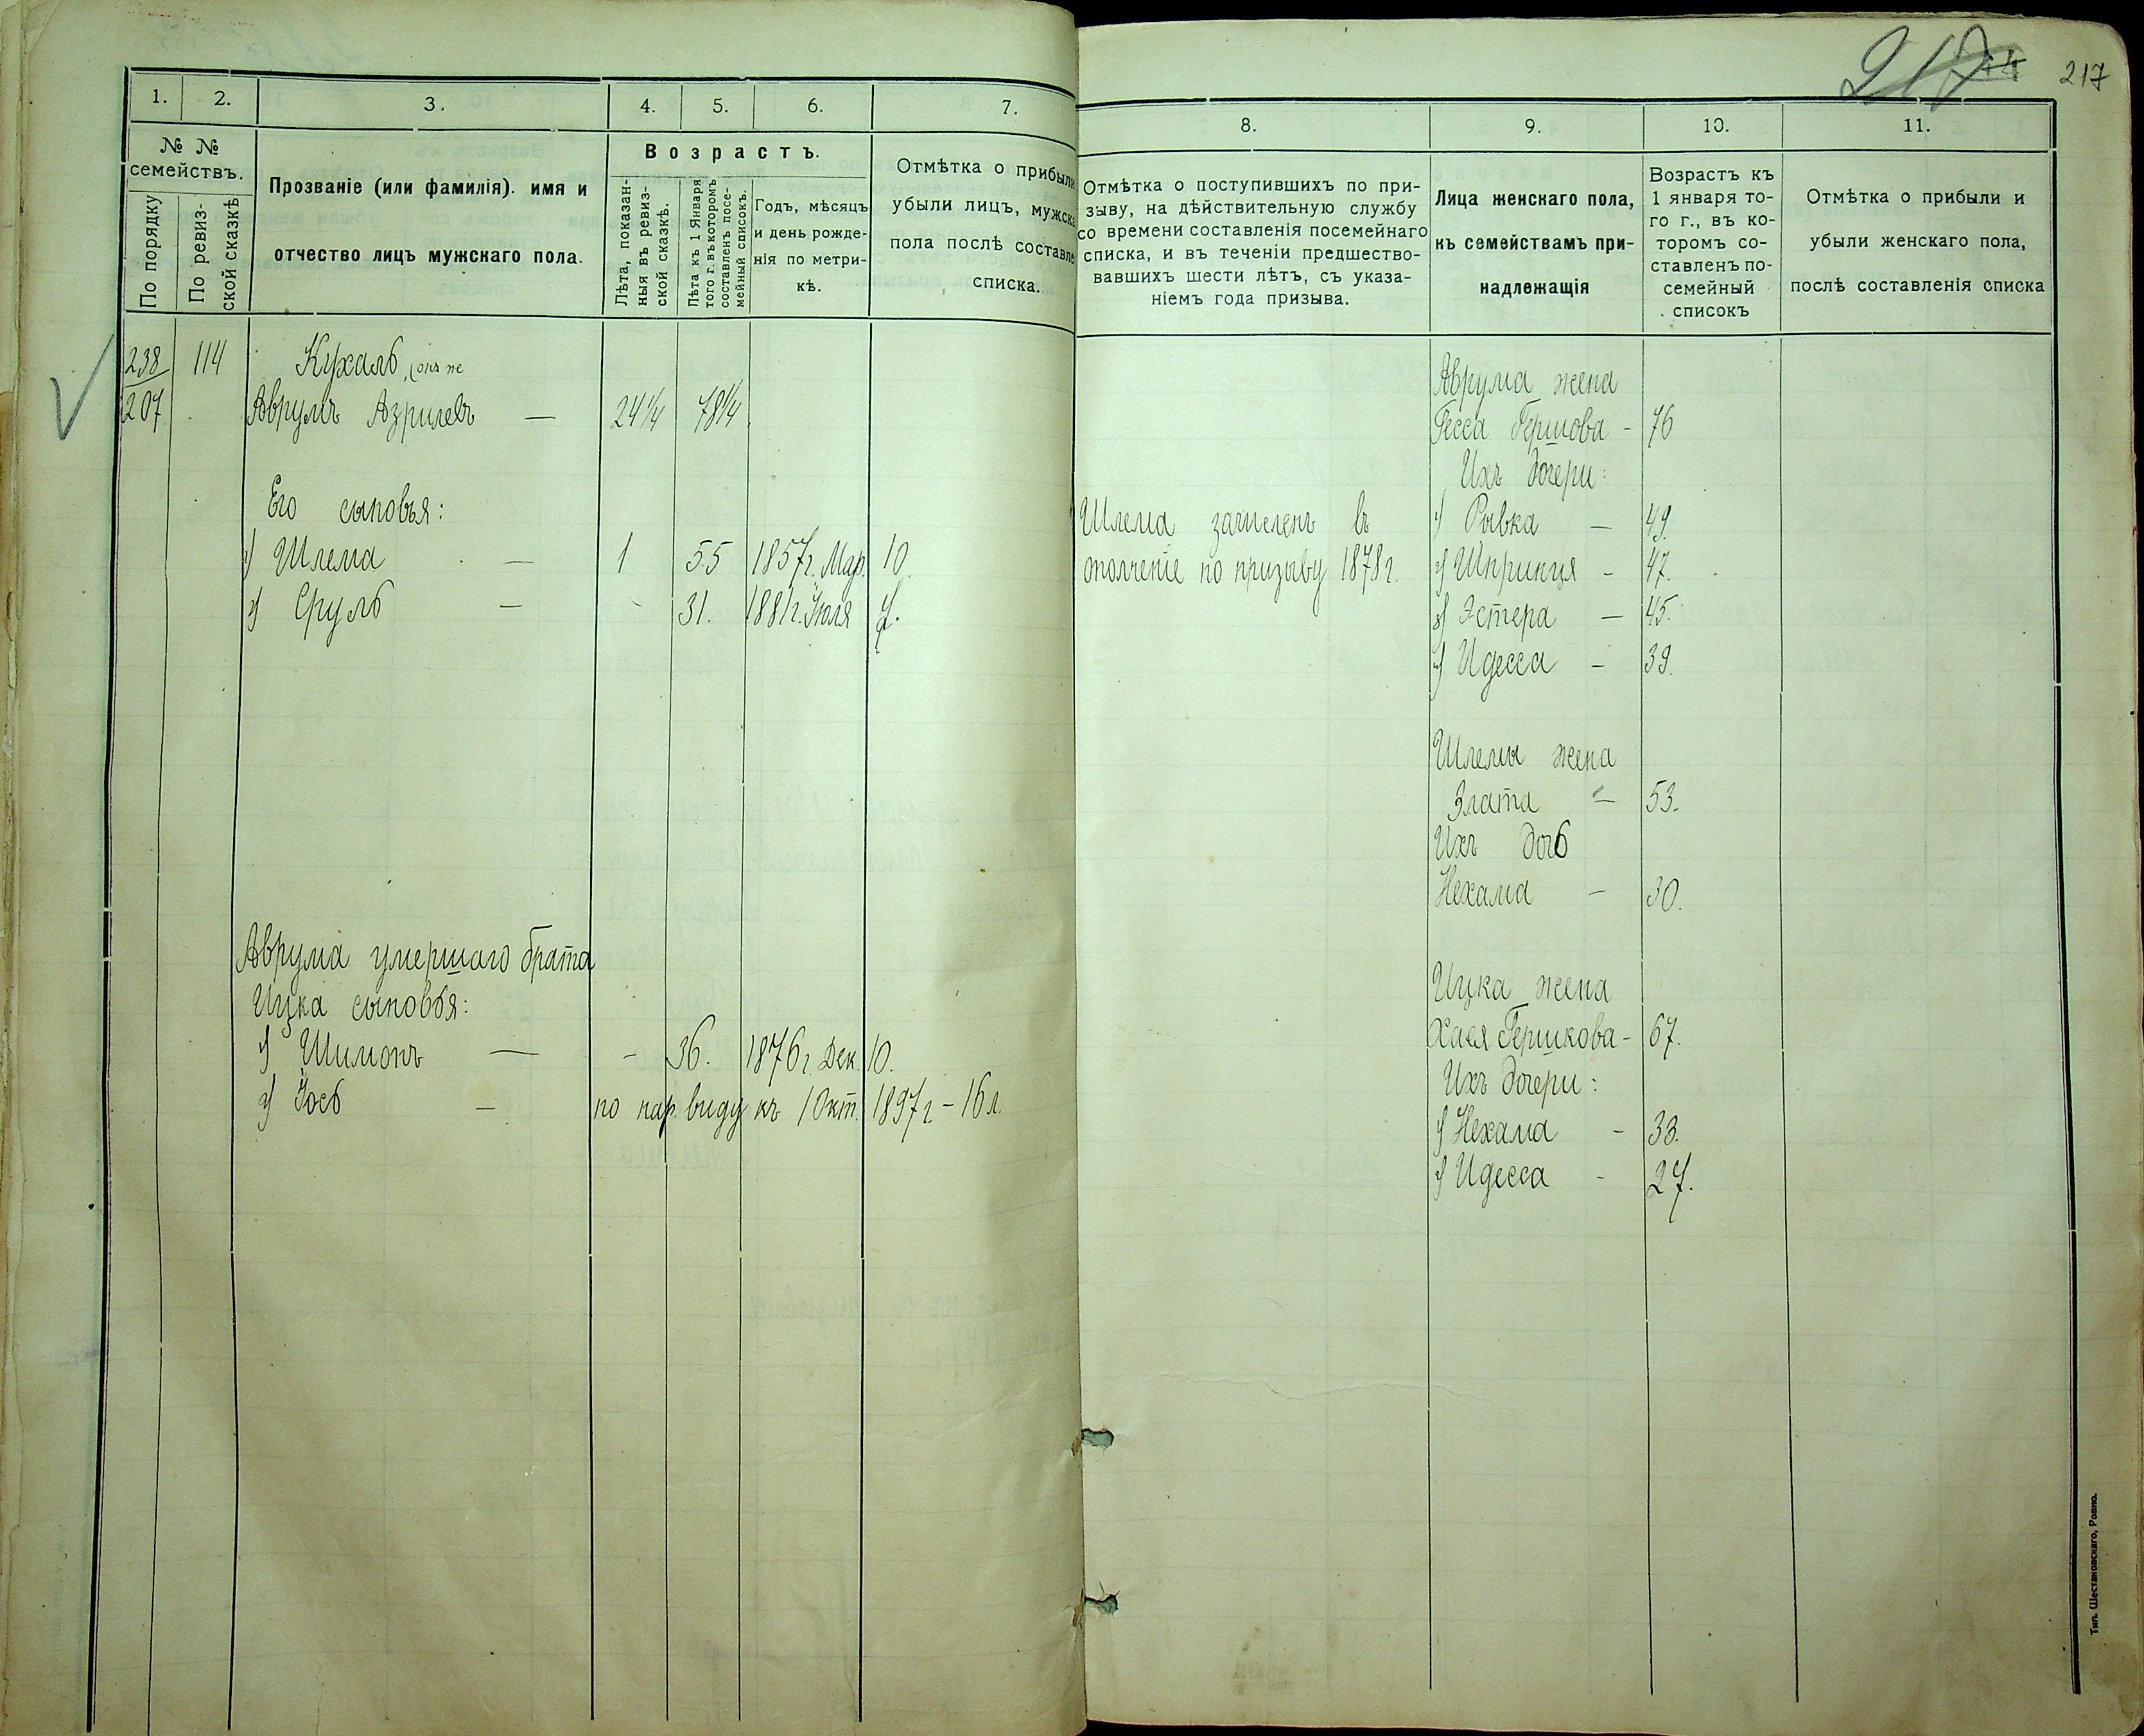 217
217
1.
2.
3.
4.
5.
6.
7.
№ №
семействъ.
По порядку
По ревиз-
ской сказкѣ
Прозваніе (или фамилія). имя и
отчество лицъ мужскаго пола.
Возрастъ.
Лѣта, показан-
ныя въ ревиз-
ской сказкѣ.
Лѣта къ 1 Января
того г. въ которомъ
составленъ посе-
мейный списокъ.
Годъ, мѣсяцъ
и день рожде-
нія по метри-
кѣ.
Отмѣтка о прибыли
убыли лицъ, мужска
пола послѣ составле
списка.
238 114 Кухаль,
207 Аврумъ Азрилевъ — 24¼ 78¼
Его сыновья:
1) Шлема — 1 55 1857г. Мар. 10.
2) Сруль — - 31. 1881г. Іюля 7.
Аврума умершаго брата
Ицка сыновья:
1) Шимонъ — - 36. 1876 г. Дек. 10.
2) Іось — по нар. виду къ 1 Окт. 1897г. - 16 л.
8.
9.
10.
11.
Отмѣтка о поступившихъ по при-
зыву, на дѣйствительную службу
со времени составленія посемейнаго
списка, и въ теченіи предшество-
вавшихъ шести лѣтъ, съ указа-
ніемъ года призыва.
Лица женскаго пола,
къ семействамъ при-
надлежащія
Возрастъ къ
1 января то-
го г., въ ко-
торомъ со-
ставленъ по-
семейный
списокъ
Отмѣтка о прибыли и
убыли женскаго пола,
послѣ составленія списка
Аврума жена
Гесса Гершова - 76
Ихъ дочери:
Шлема зачисленъ въ 1) Рывка — 49.
ополченіе по призыву 1878г. 2) Шпринця - 47.
3) Эстера — 45.
4) Идесса - 39.
Шлемы жена
Злата — 53.
Ихъ дочь
Нехама - 30.
Ицка жена
Хася Гершкова - 67.
Ихъ дочери:
1) Нехама - 33.
2) Идесса - 27.
Тип. Шестаковскаго, Ровно.